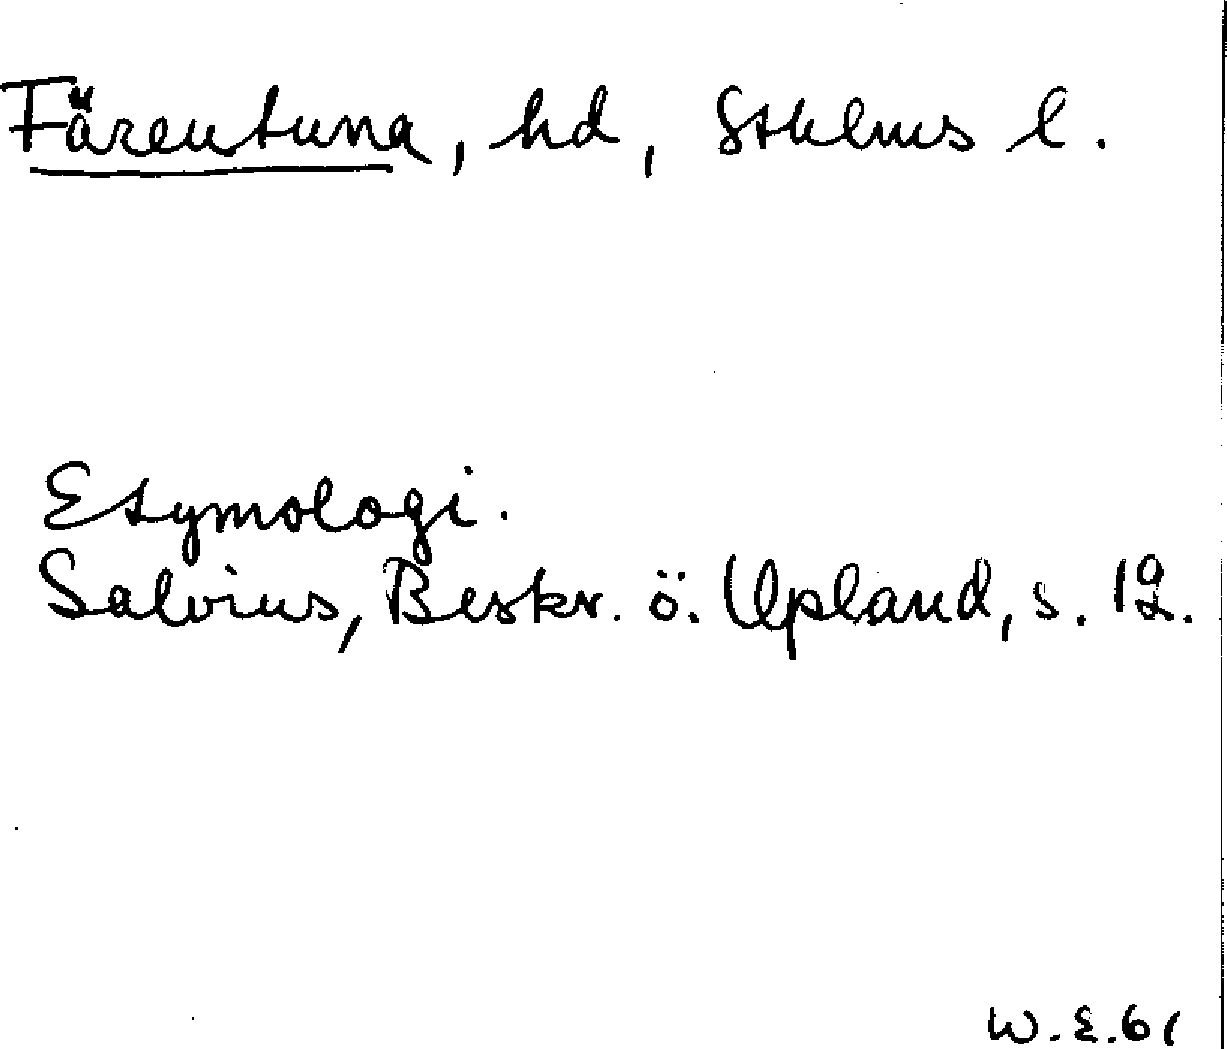 Färentuna, hd, Sthlms l.
Etymologi.
Salvius, Beskr. ö. Upland, s. 12.
W.E.61